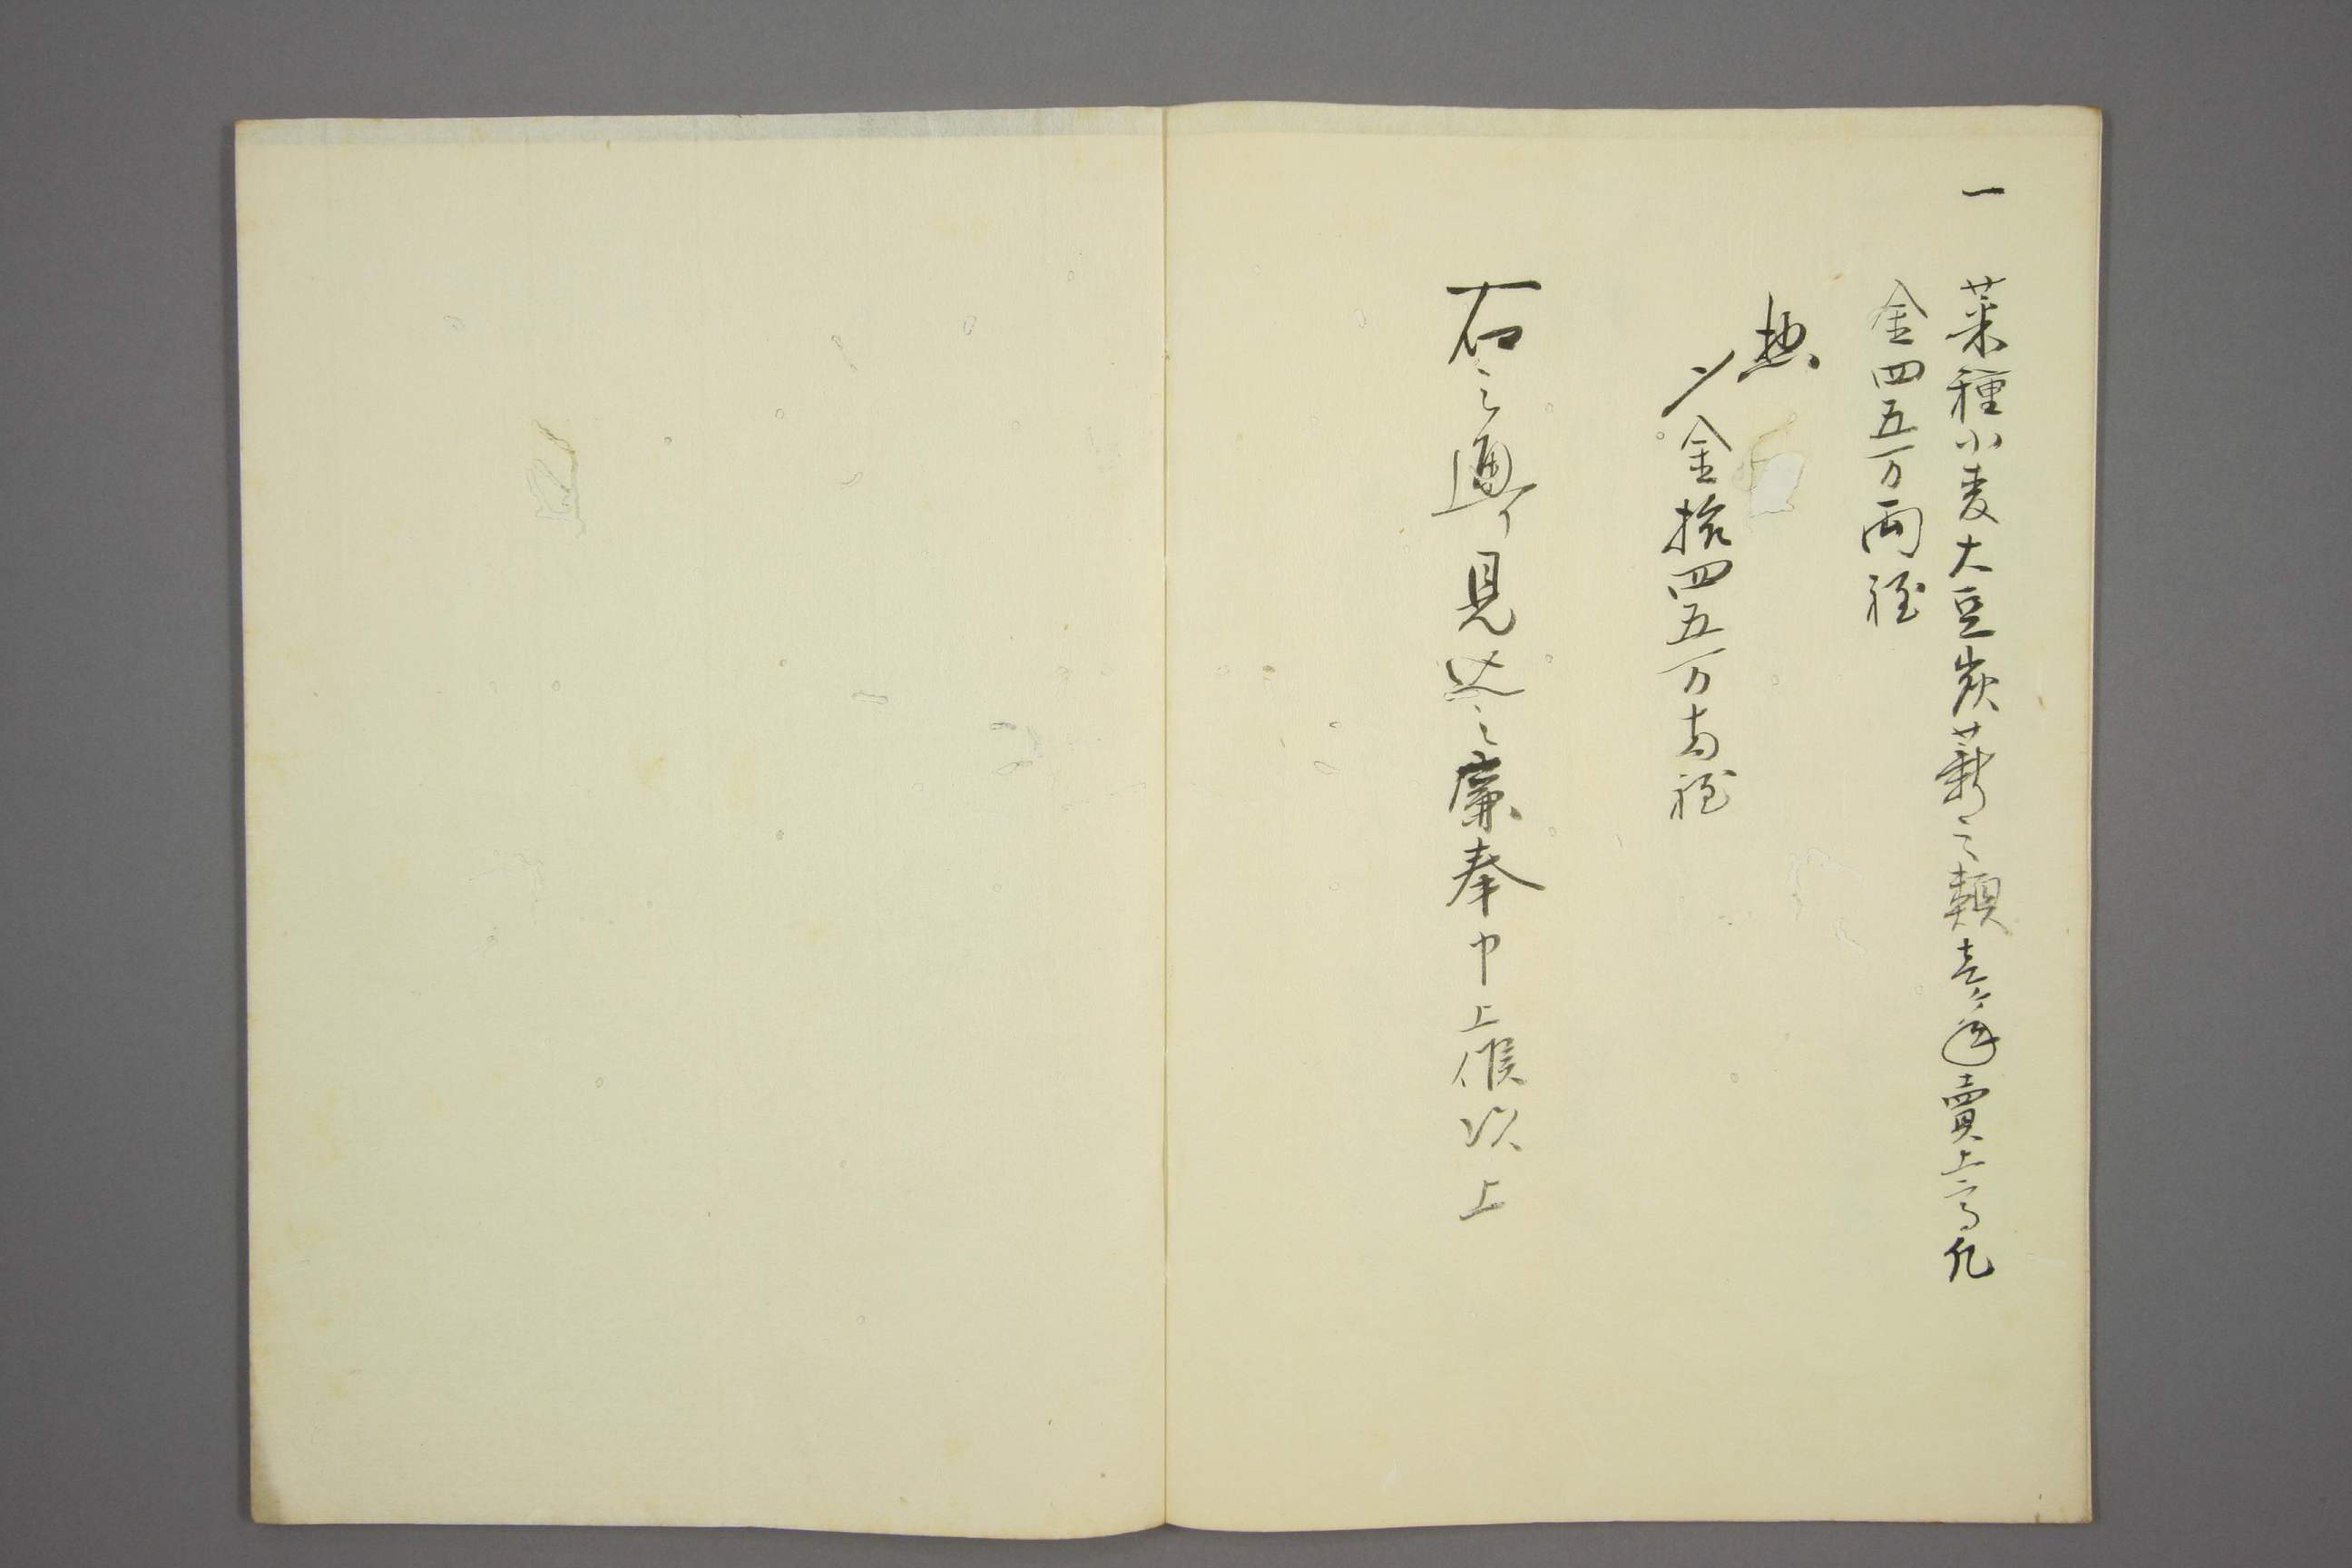 一 菜種小麦大豆炭薪之類壱ケ年賣上高凡
金四五万両程
惣
〆金拾四五万両程
右之通り見込之廉奉申上候以上